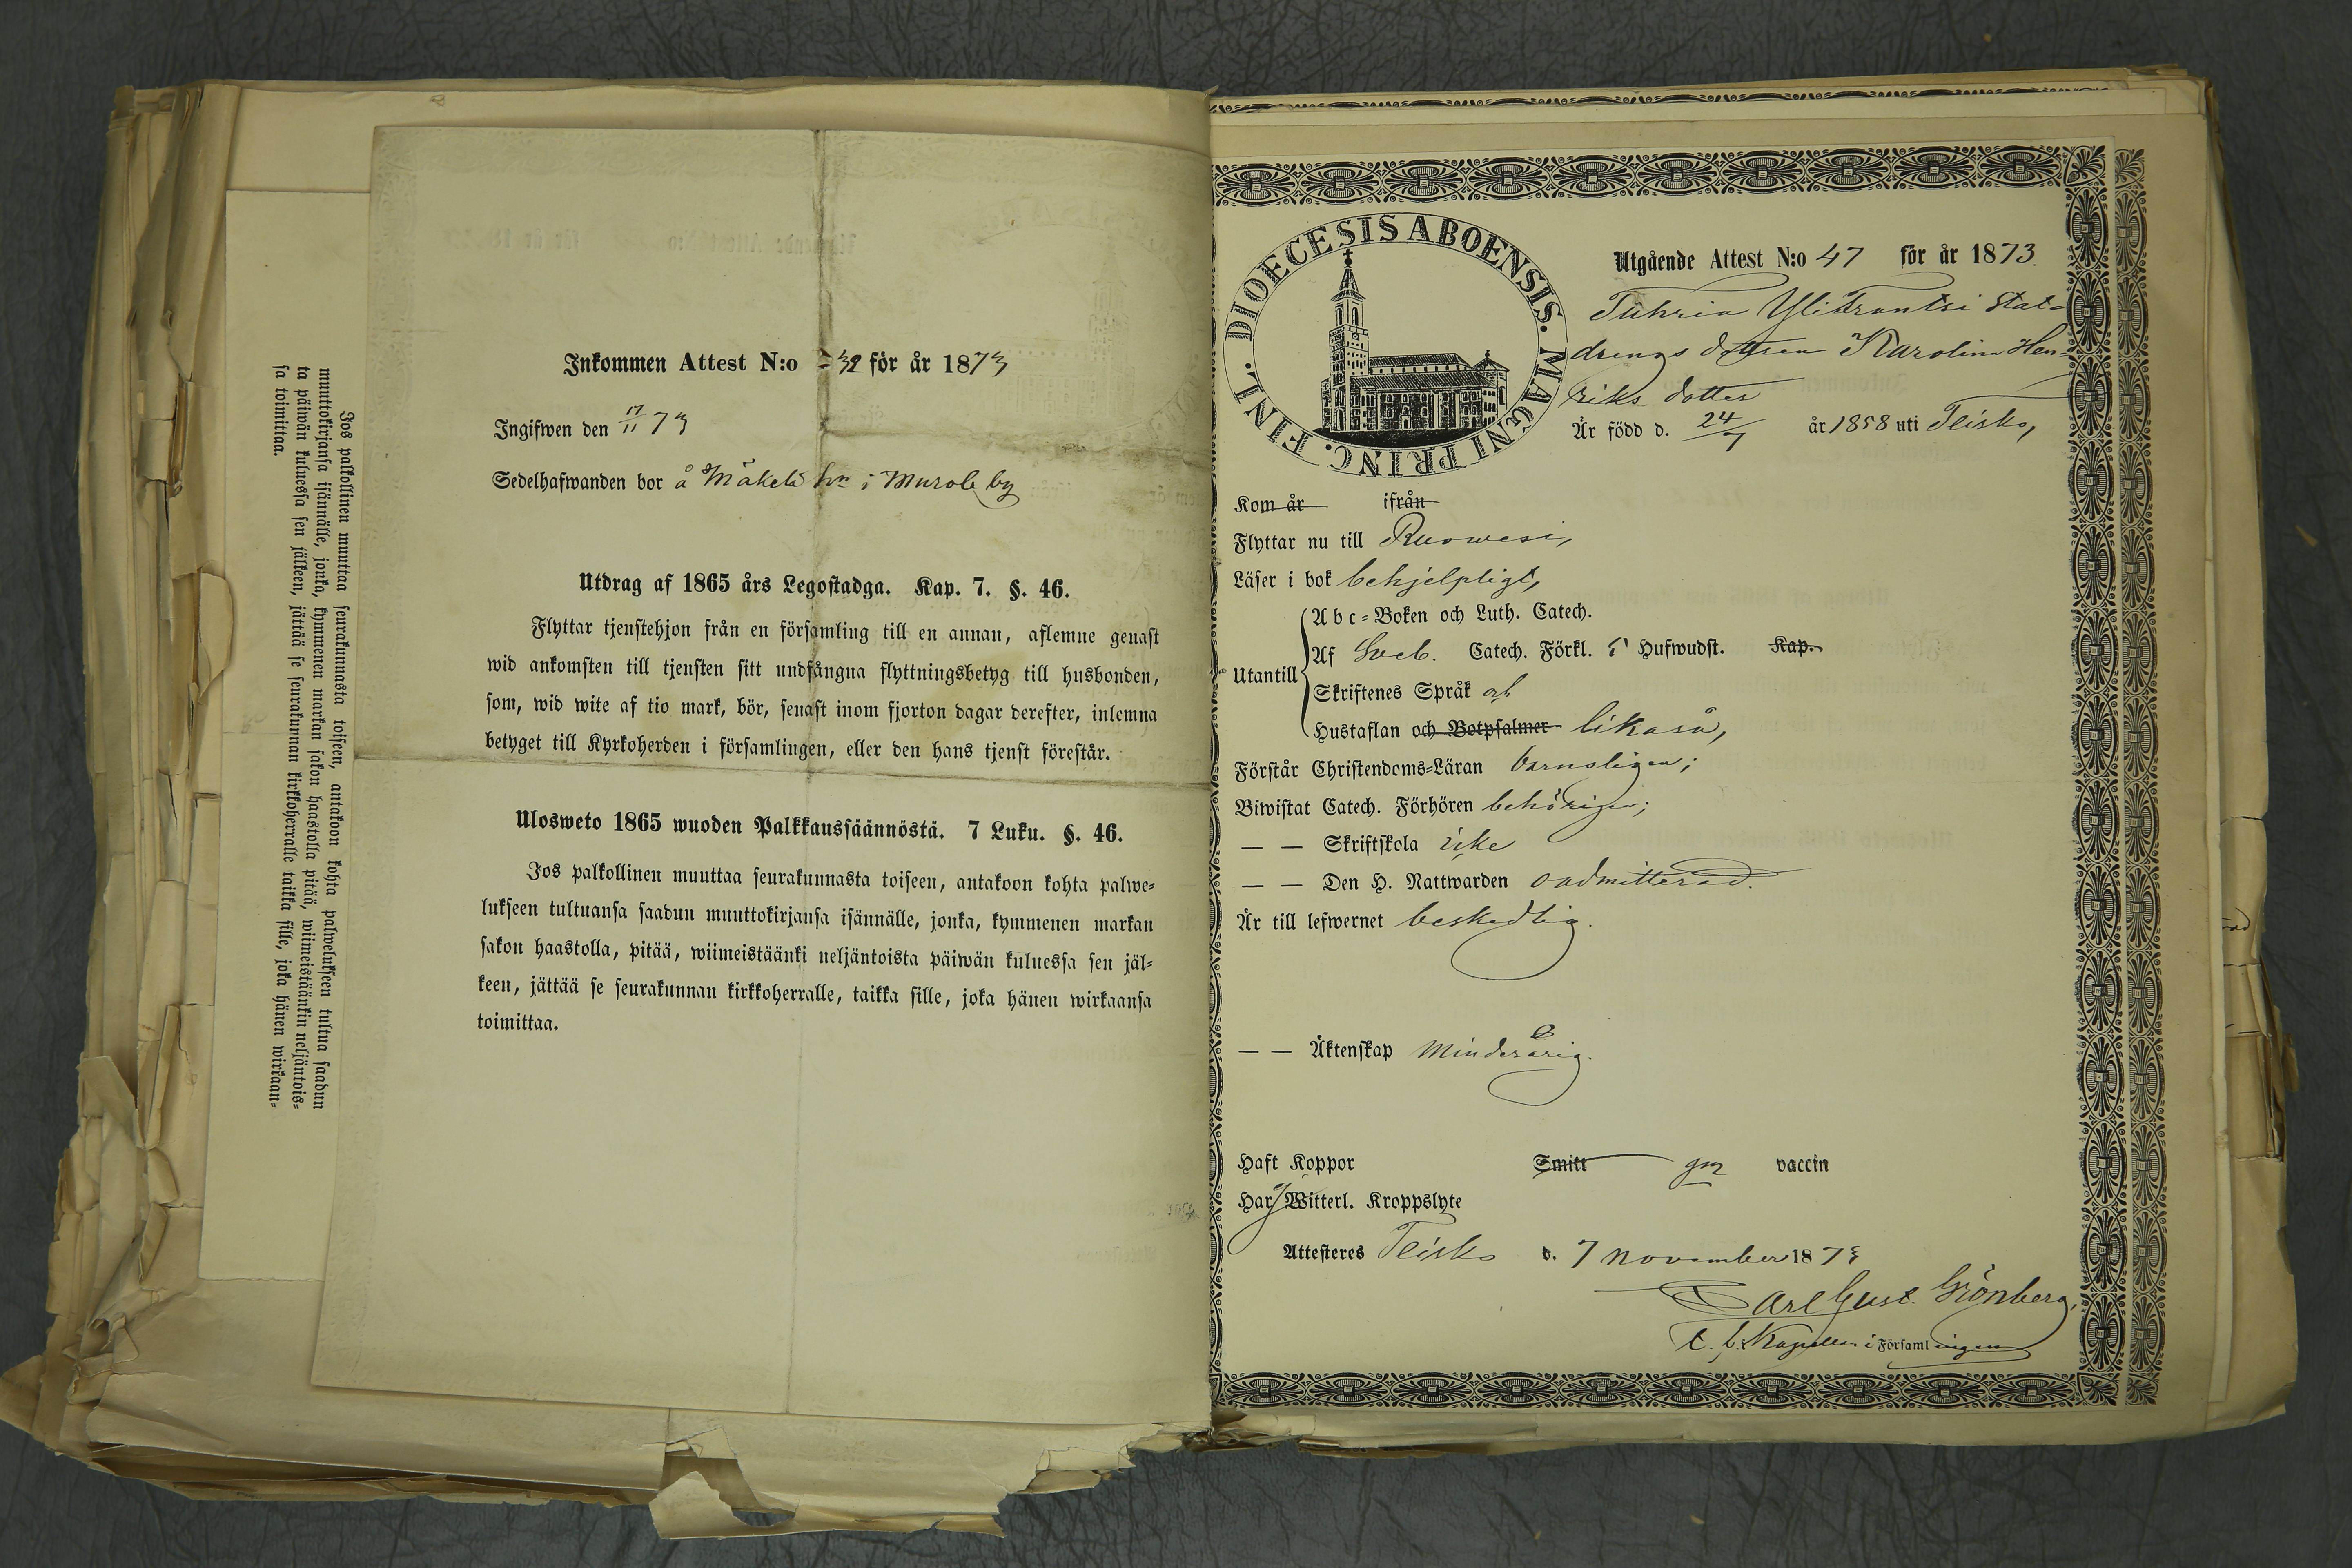 Jos palkollinen muuttaa seurakunnasta toiseen, antakoon kohta palwelukseen tultua saadun
muuttokirjansa isännälle, jonka, kymmenen markan sakon haastolla pitää, wiimeistäänkin neljäntois=
ta päiwän kuluessa sen jälkeen, jättää se seurakunnan kirkkoherralle taikka sille, joka hänen wirkaan=
sa toimittaa.
Inkommen Attest N:o 32 för år 1873
Ingifwen den 17/11 73
Sedelhafwanden bor å Mäkelä hn i Murole by
Utdrag af 1865 års Legostadga. Kap. 7. §. 46.
Flyttar tjenstehjon från en församling till en annan, aflemne genast
wid ankomsten till tjensten sitt undfångna flyttningsbetyg till husbonden,
som, wid wite af tio mark, bör, senast inom fjorton dagar derefter, inlemna
betyget till Kyrkoherden i församlingen, eller den hans tjenst förestår.
Ulosweto 1865 wuoden Palkkaussäännöstä. 7 Luku. §. 46.
Jos palkollinen muuttaa seurakunnasta toiseen, antakoon kohta palwe=
lukseen tultuansa saadun muuttokirjansa isännälle, jonka, kymmenen markan
sakon haastolla, pitää, wiimeistäänki neljäntoista päiwän kuluessa sen jäl=
keen, jättää se seurakunnan kirkkoherralle, taikka sille, joka hänen wirkaansa
toimittaa.
DIOECESIS ABOENSIS. MAGNI PRINC. FINL.
Utgående Attest N:o 47 för år 1873
Yliskrantsi Stat=
drengs dottren Karolina Hen=
riks dotter
Är född d. 24/7 år 1858 uti Teisko,
Kom år ifrån
Flyttar nu till Ruowesi,
Läser i bok behjelpligt,
Abc=Boken och Luth. Catech.
Utantill
Af Sveb. Catech. Förkl. 5 Hufwudst. Kap.
Skriftenes Språk och
Hustaflan och Botpsalmer likaså,
Förstår Christendoms=Läran barnsligen;
Biwistat Catech. Förhören behörigen;
— — Skriftskola icke
— — Den H. Nattwarden oadmitterad.
Är till lefwernet beskedlig.
— — Äktenskap Minderårig.
Haft Koppor Smitt gm vaccin
Har Witterl. Kroppslyte
Attesteres Teisko d. 7 november 1873
Carl Gust. Grönberg,
t. f. Kapellan i Församlingen